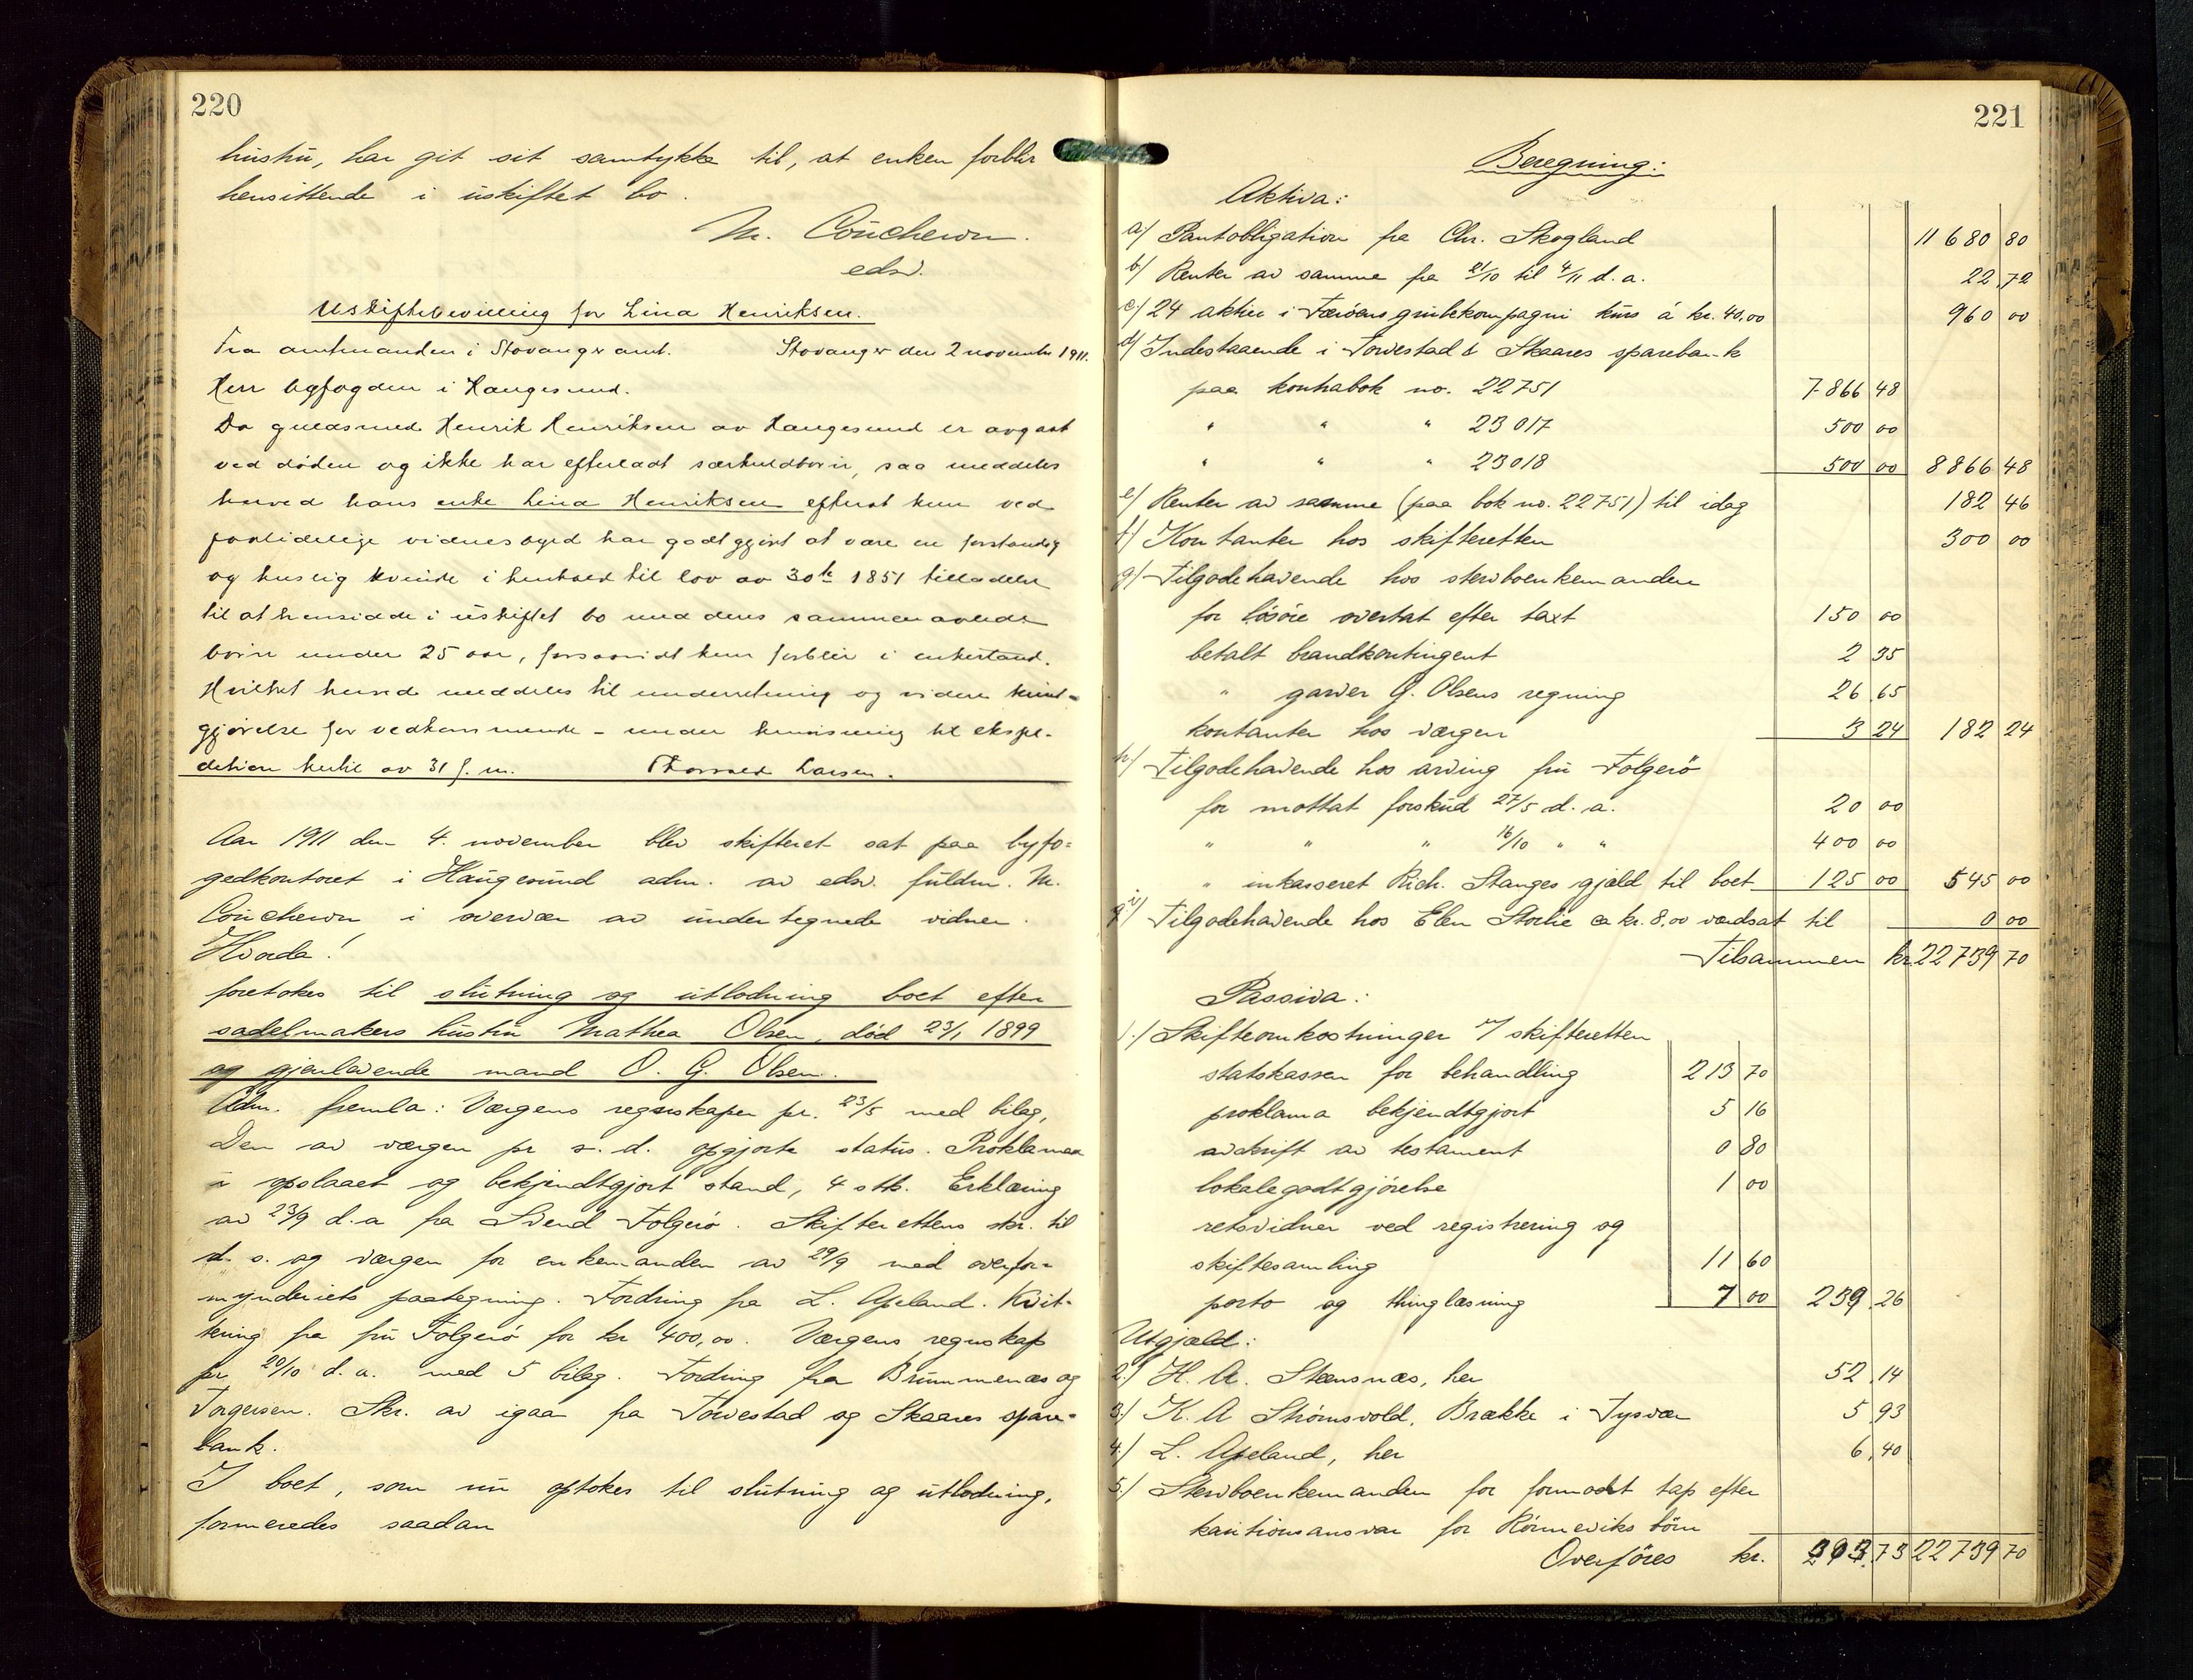 220
hustru, har git sit samtykke til, at enken forblir
hensittende i uskiftet bo.
M. Coucheron.
edsv.
Uskiftebevilling for Lina Henriksen.
Fra amtmanden i Stavanger amt. Stavanger den 2 november 1911.
Herr byfogden i Haugesund.
Da guldsmed Henrik Henriksen av Haugesund er avgaat
ved døden og ikke har efterladt særkuldbørn, saa meddeles
herved hans enke Lina Henriksen efterat hun ved
paalidelige vidnesbyrd har godtgjort at være en forstandig
og huslig kvinde i henhold til lov av 30te 1851 tilladelse
til at hensidde i uskiftet bo med deres sammen avlede
børn under 25 aar, forsaavidt hun forblir i enkestand.
Hvilket herved meddeles til underretning og videre kund-
gjørelse for vedkommende - under henvisning til ekspe-
dition hertil av 31 f. m. Thorvald Larsen.
Aar 1911 den 4. november blev skifteret sat paa byfo=
gedkontoret i Haugesund adm. av edsv. fuldm. M.
Coucheron i overvær av undertegnede vidner.
Hvorda!
foretokes til slutning og utlodning boet efter
sadelmakers hustru Mathea Olsen, død 23/1 1899
og gjenlevende mand O. G. Olsen.
Adm. fremla: Værgens regnskaper pr. 23/5 med bilag,
Den av værgen pr s. d. opgjorte status. Proklamaa
i opslaaet og bekjendtgjort stand, 4 stk. Erklæring
av 23/9 d. a fra Svend Folgerø. Skifterettens skr. til
d. s. og værgen for enkemanden av 29/9 med overfor=
mynderiets paategning. Fordring fra L. Apeland. Kvit-
tering fra fru Folgerø for kr 400,00. Værgens regnskap
pr 20/10 d. a. med 5 bilag. Fordring fra Brummenæs og
Torgersen. Skr. av igaar fra Torvestad og Skaares spare=
bank.
I boet, som nu optokes til slutning og utlodning,
formeredes saadan
221
Beregning:
Aktiva:
a/ Pantobligation fra Chr. Skogland 11680 80
b/ Renter av samme fra 21/10 til 4/11 d. a. 22 72
c/ 24 aktier i Færöens grubekompagni kurs á kr. 40,00 960 00
d/ Indestaaende i Torvestad & Skaares sparebank
paa kontrabok no. 22751 7866 48
" " " 23017 500 00
" " " 23018 500 00 8866 48
e/ Renter av samme (paa bok no. 22751) til idag 182 46
f/ Kontanter hos skifteretten 300 00
g/ Tilgodehavende hos stervboenkemanden
for løsøre overtat efter taxt 150 00
betalt brandkontingent 2 35
" garver G. Olsens regning 26 65
kontanter hos værgen 3 24 182 24
h/ Tilgodehavende hos arving fru Folgerö
for mottat forskud 27/5 d. a. 20 00
" " " 16/10 " " 400 00
" inkasseret Rich. Stanges gjæld til boet 125 00 545 00
i/ Tilgodehavende hos Elen Storlie ca kr. 8,00 værdsat til 0 00
Tilsammen kr 22739 70
Passiva:
1./ Skifteomkostninger v/ skifteretten
statskassen for behandling 213 70
proklama bekjendtgjort 5 16
avskrift av testament 0 80
lokalegodtgjørelse 1 00
retsvidner ved registrering og
skiftesamling 11 60
porto og thinglæsning 7 00 239 26
Utgjæld:
2./ H. A. Stensnæs, her 52 14
3./ K. A Strömsvold, Brække i Tysvær 5 93
4./ L. Apeland, her 6 40
5./ Stervboenkemanden for formodet tap efter
kautionsansvar for Rönneviks börn
Overföres kr. 303 73 22739 70